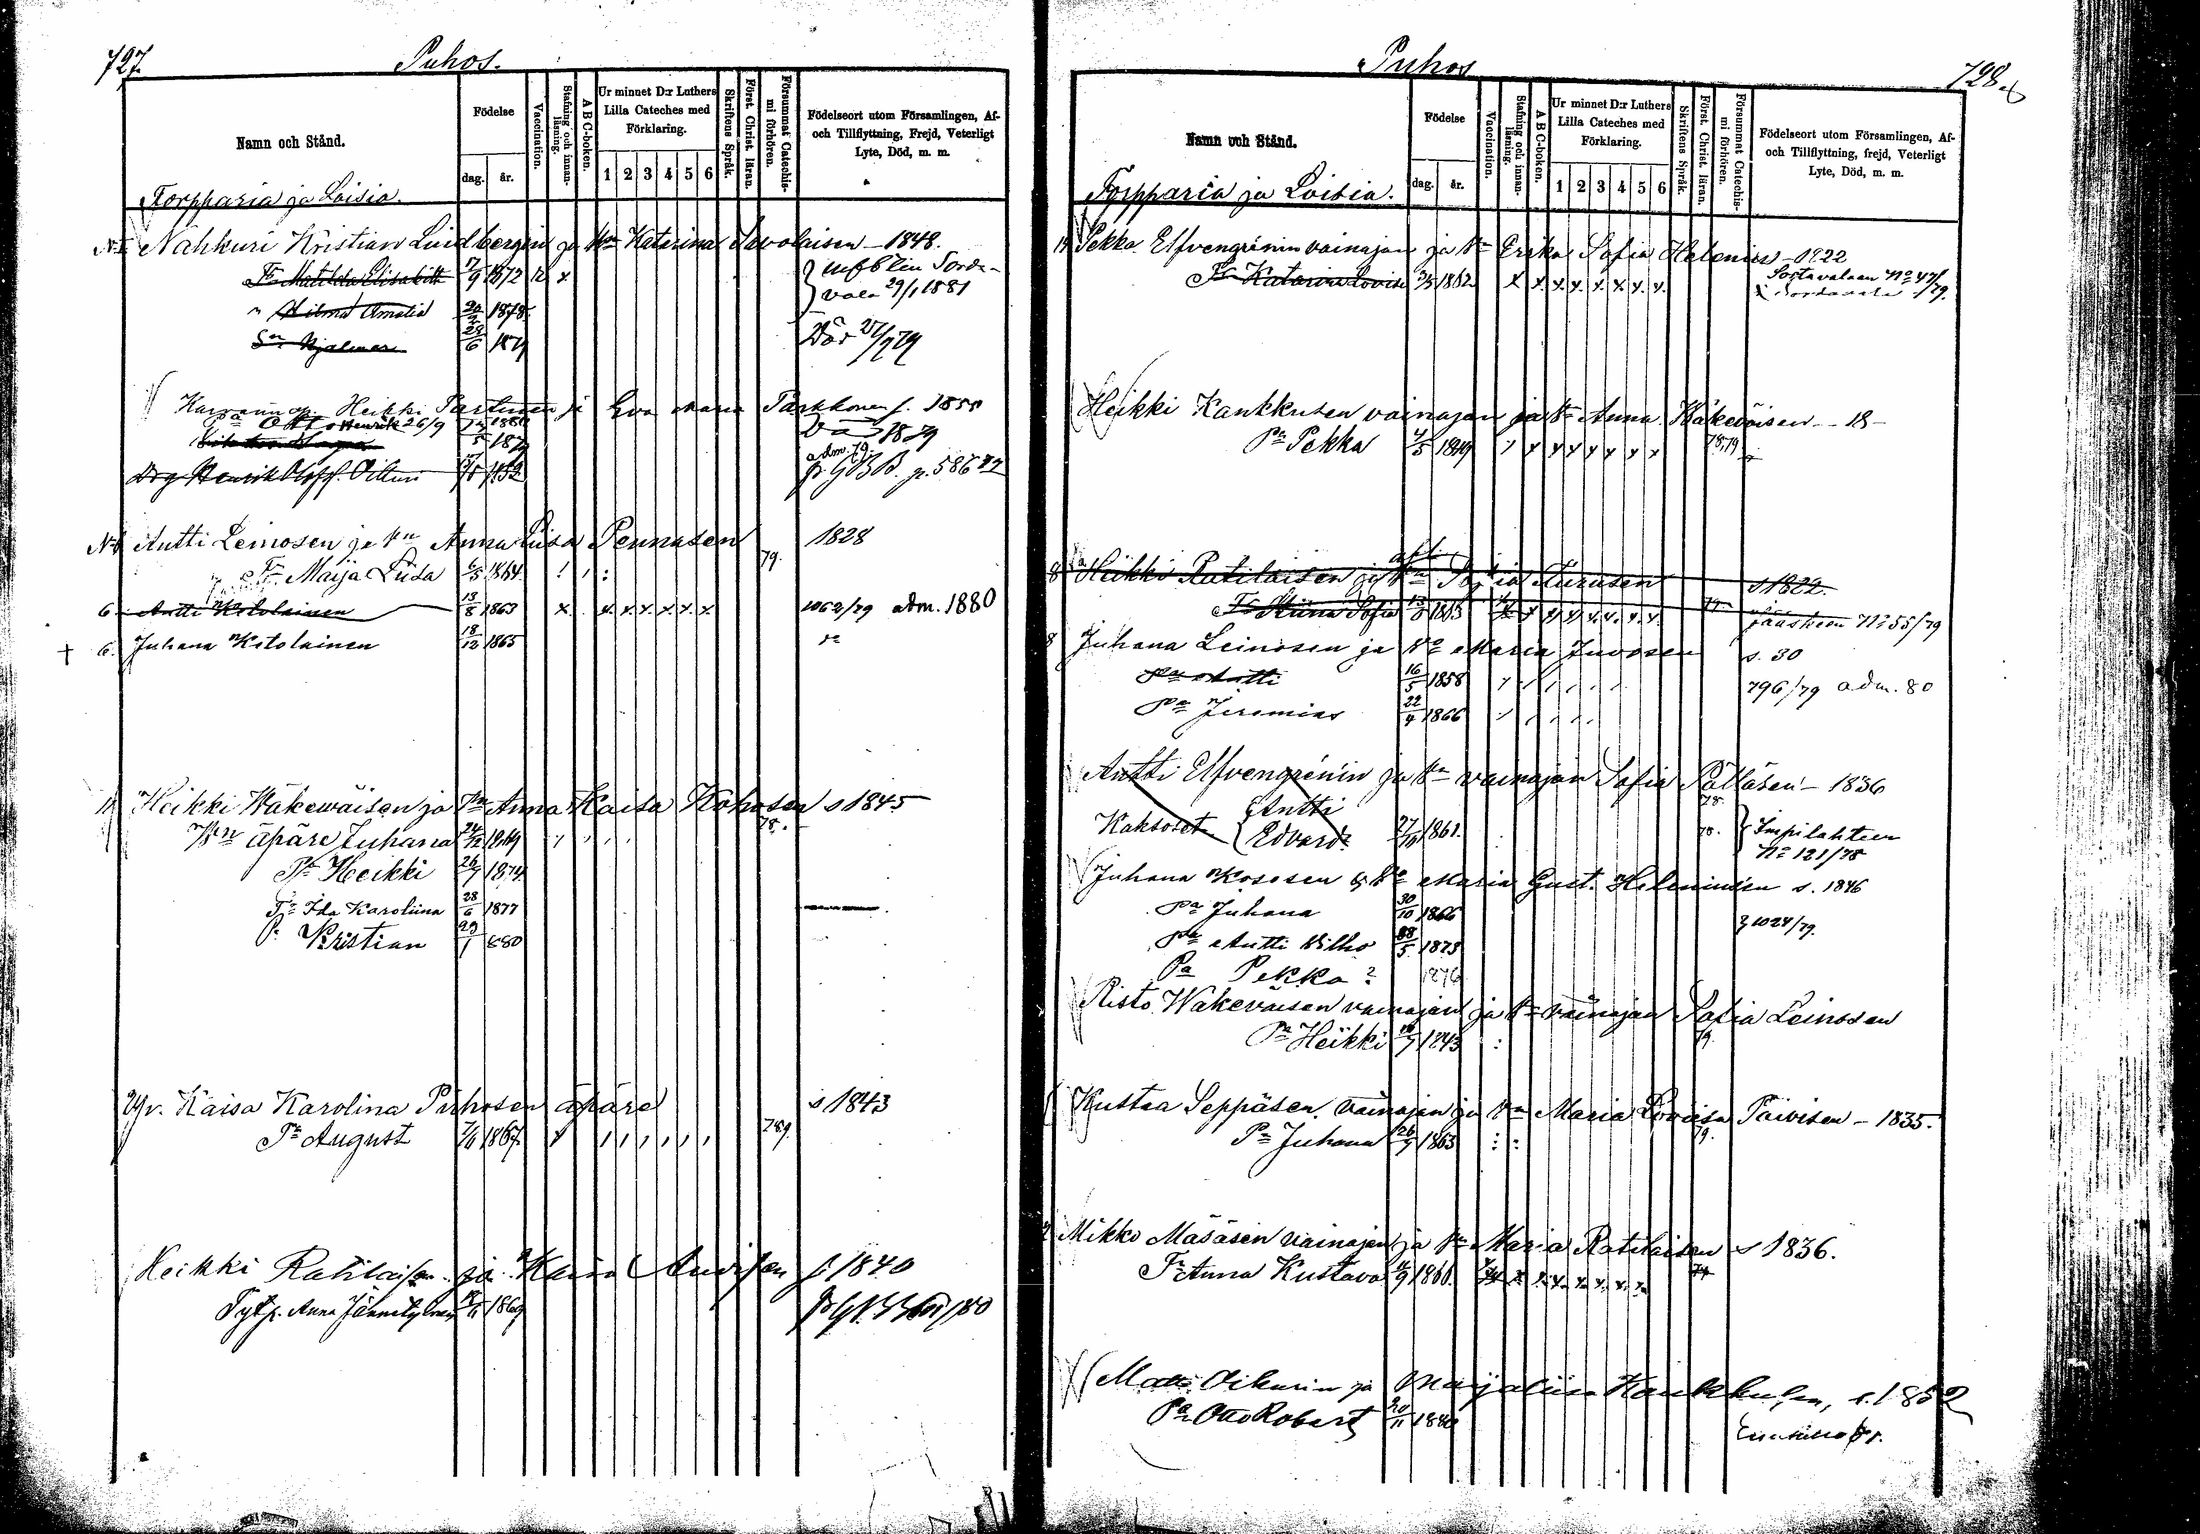 727.
Puhos.
Namn och Stånd.
Födelse
dag. år.
Vaccination.
Stafning och innanläsning.
A B C-boken.
Ur minnet D:r Luthers Lilla Cateches med Förklaring.
1 2 3 4 5 6
Skriftens Språk.
Först. Christ. läran.
Försummat Catechismi förhören.
Födelseort utom Församlingen, Af- och Tillflyttning, Frejd, Veterligt Lyte, Död, m. m.
Torpparia ja Loisia.
Nahkuri Kristian Lindbergin ja Vn Katarina Savolaisen - 1848.
Tr Matilda Elisabett 17/9 1872 12 x
Sordavala 29/1 1881
" Hilma Amalia 1878.
Sn Hjalmar 28/6 1879
Död
Heikki Partinen ja Eva Maria Parkkonen f. 1855
Otto Henrik 26/9 1880
1879
adm. 79.
Drg Henrik Oloff. Oitturi 1852
No 6 Antti Leinosen ja Vn Anna Liisa Pennasen 1828
Tr Maija Liisa 6/5 1864. 79.
6 Antti Kotolainen 13/8 1863 x x x x x x x 1062/79 adm. 1880
† 6. Juhana Kotolainen 18/12 1865
11 Heikki Wäkewäisen ja Vn Anna Kaisa Kohosen s 1845
Vn äpäre Juhana 24/12 1869 78.
Pa Heikki 26/7 1874.
Tr Ida Karoliina 28/6 1877
Pa Kristian 29/1 1880
Kaisa Karolina Puhosen äpäre s 1843
Pa August 1867. 789.
Heikki Ratilaisen ja Kaisa Auvisen f. 1840
Tytp. Anna 1869
728.
Puhos
Namn och Stånd.
Födelse
dag. år.
Vaccination.
Stafning och innanläsning.
A B C-boken.
Ur minnet D:r Luthers Lilla Cateches med Förklaring.
1 2 3 4 5 6
Skriftens Språk.
Först. Christ. läran.
Försummat Catechismi förhören.
Födelseort utom Församlingen, Af- och Tillflyttning, frejd, Veterligt Lyte, Död, m. m.
Torpparia ja Loisia.
Pekka Elfvengrénin vainajan ja Vn Erika Sofia Helenius - 1822
Tr Katarina Lovisa 1862 x x x x x x x x Sortavalaan No 47/79.
Heikki Kankkusen vainajan ja Vn Anna Wäkeväisen - 18-
Pa Pekka 4/5 1849 78,79
8 Heikki Ratilaisen ja Vn Sofia Turusen s 1822.
Tr Stiina Sofia 1863 Jääskeen No 55/79
8 Juhana Leinosen ja Vn Maria Juvosen s. 30
Pa Antti 16/5 1858 796/79 adm. 80
Pa Jeremias 22/4 1866
Antti Elfvengrénin ja Vn vainajan Sofia Pätläsen - 1836
Kaksoset { Antti
Edvard. 27/10 1861. 78. } Impilahteen
No 121/78
Juhana Kososen ja Vn Maria Gust. Heleniusen s. 1846
Pa Juhana 30/10 1866
Pa Antti Wilho 1873 } 1024/79.
Pa Pekka ? 1876
Risto Wäkeväisen vainajan ja Vn vainajan Sofia Leinosen
Pa Heikki 1843 79.
Kustaa Seppäsen vainajan ja Vn Maria Loviisa Päivisen - 1835.
Pa Juhana 26/9 1863 79.
Mikko Mäsäsen vainajan ja Vn Maria Ratilaisen s 1836.
Tr Anna Kustava 1866.
Matti Oikurin ja Maijaliisa Kankkusen, s. 1852
Pa Otto Robert 20/11 1880